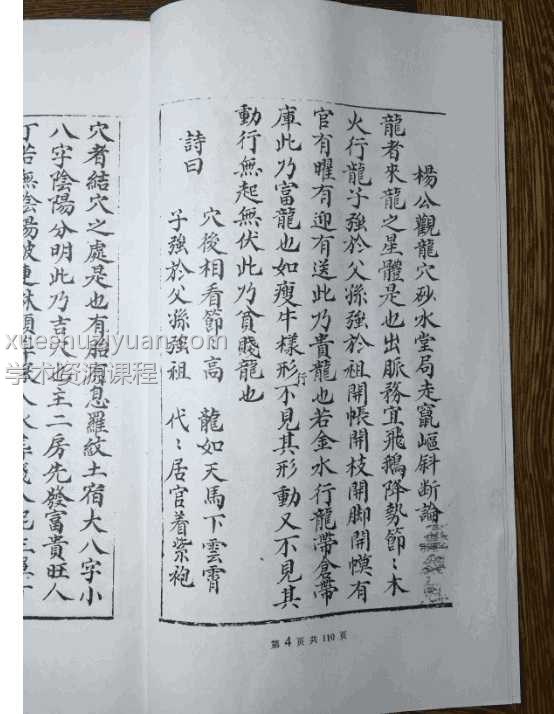 楊公觀龍穴砂水堂局走竄嶇斜斷論
龍者來龍之星體是也出脈務宜飛鵝降勢節〻木
火行龍子強於父孫強於祖開帳開枝開脚開幙有
官有曜有迎有送此乃貴龍也若金水行龍帶倉帶
庫此乃富龍也如瘦牛樣形行不見其形動又不見其
動行無起無伏此乃貧賤龍也
詩曰
穴後相看節〻高 龍如天馬下雲霄
子強於父孫強祖 代〻居官着紫袍
第 4 页 共 110 页
穴者結穴之處是也有胎有息羅紋土宿大八字小
八字陰陽分明此乃吉穴也主二房先發富貴旺人
丁若無陰陽
xueshuziyuan.com
学术资源课程